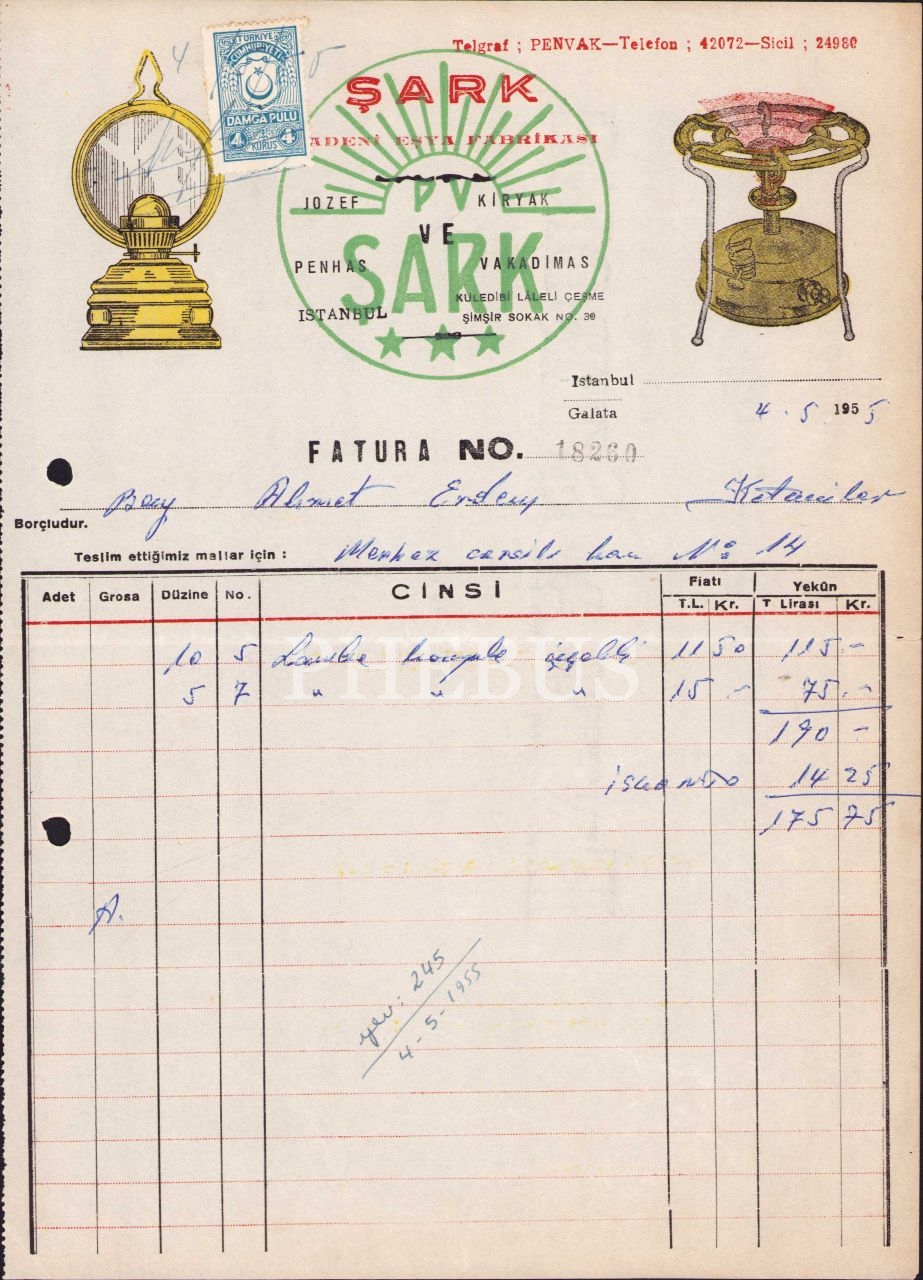 Telgraf ; PENVAK—Telefon ; 42072—Sicil ; 24980
TÜRKİYE
CUMHURİYETİ
DAMGA PULU
4 KURUŞ 4
ŞARK
ADENİ EŞYA FABRİKASI
PV
JOZEF KİRYAK
VE
PENHAS VAKADİMAS
ŞARK
KULEDİBİ LÂLELİ ÇEŞME
ISTANBUL ŞİMŞİR SOKAK NO. 30
Istanbul
Galata 4 . 5 1955
FATURA NO. 18260
Bay Ahmet
Borçludur.
Teslim ettiğimiz mallar için : han No 14
Adet Grosa Düzine No. CİNSİ Fiatı Yekûn
T.L. Kr. T Lirası Kr.
10 5 Lamba komple 11 50 115 -
5 7 " " " 15 - 75 -
190 -
iskonto 14 25
175 75
PHEBUS
A.
yev: 245
4-5-1955